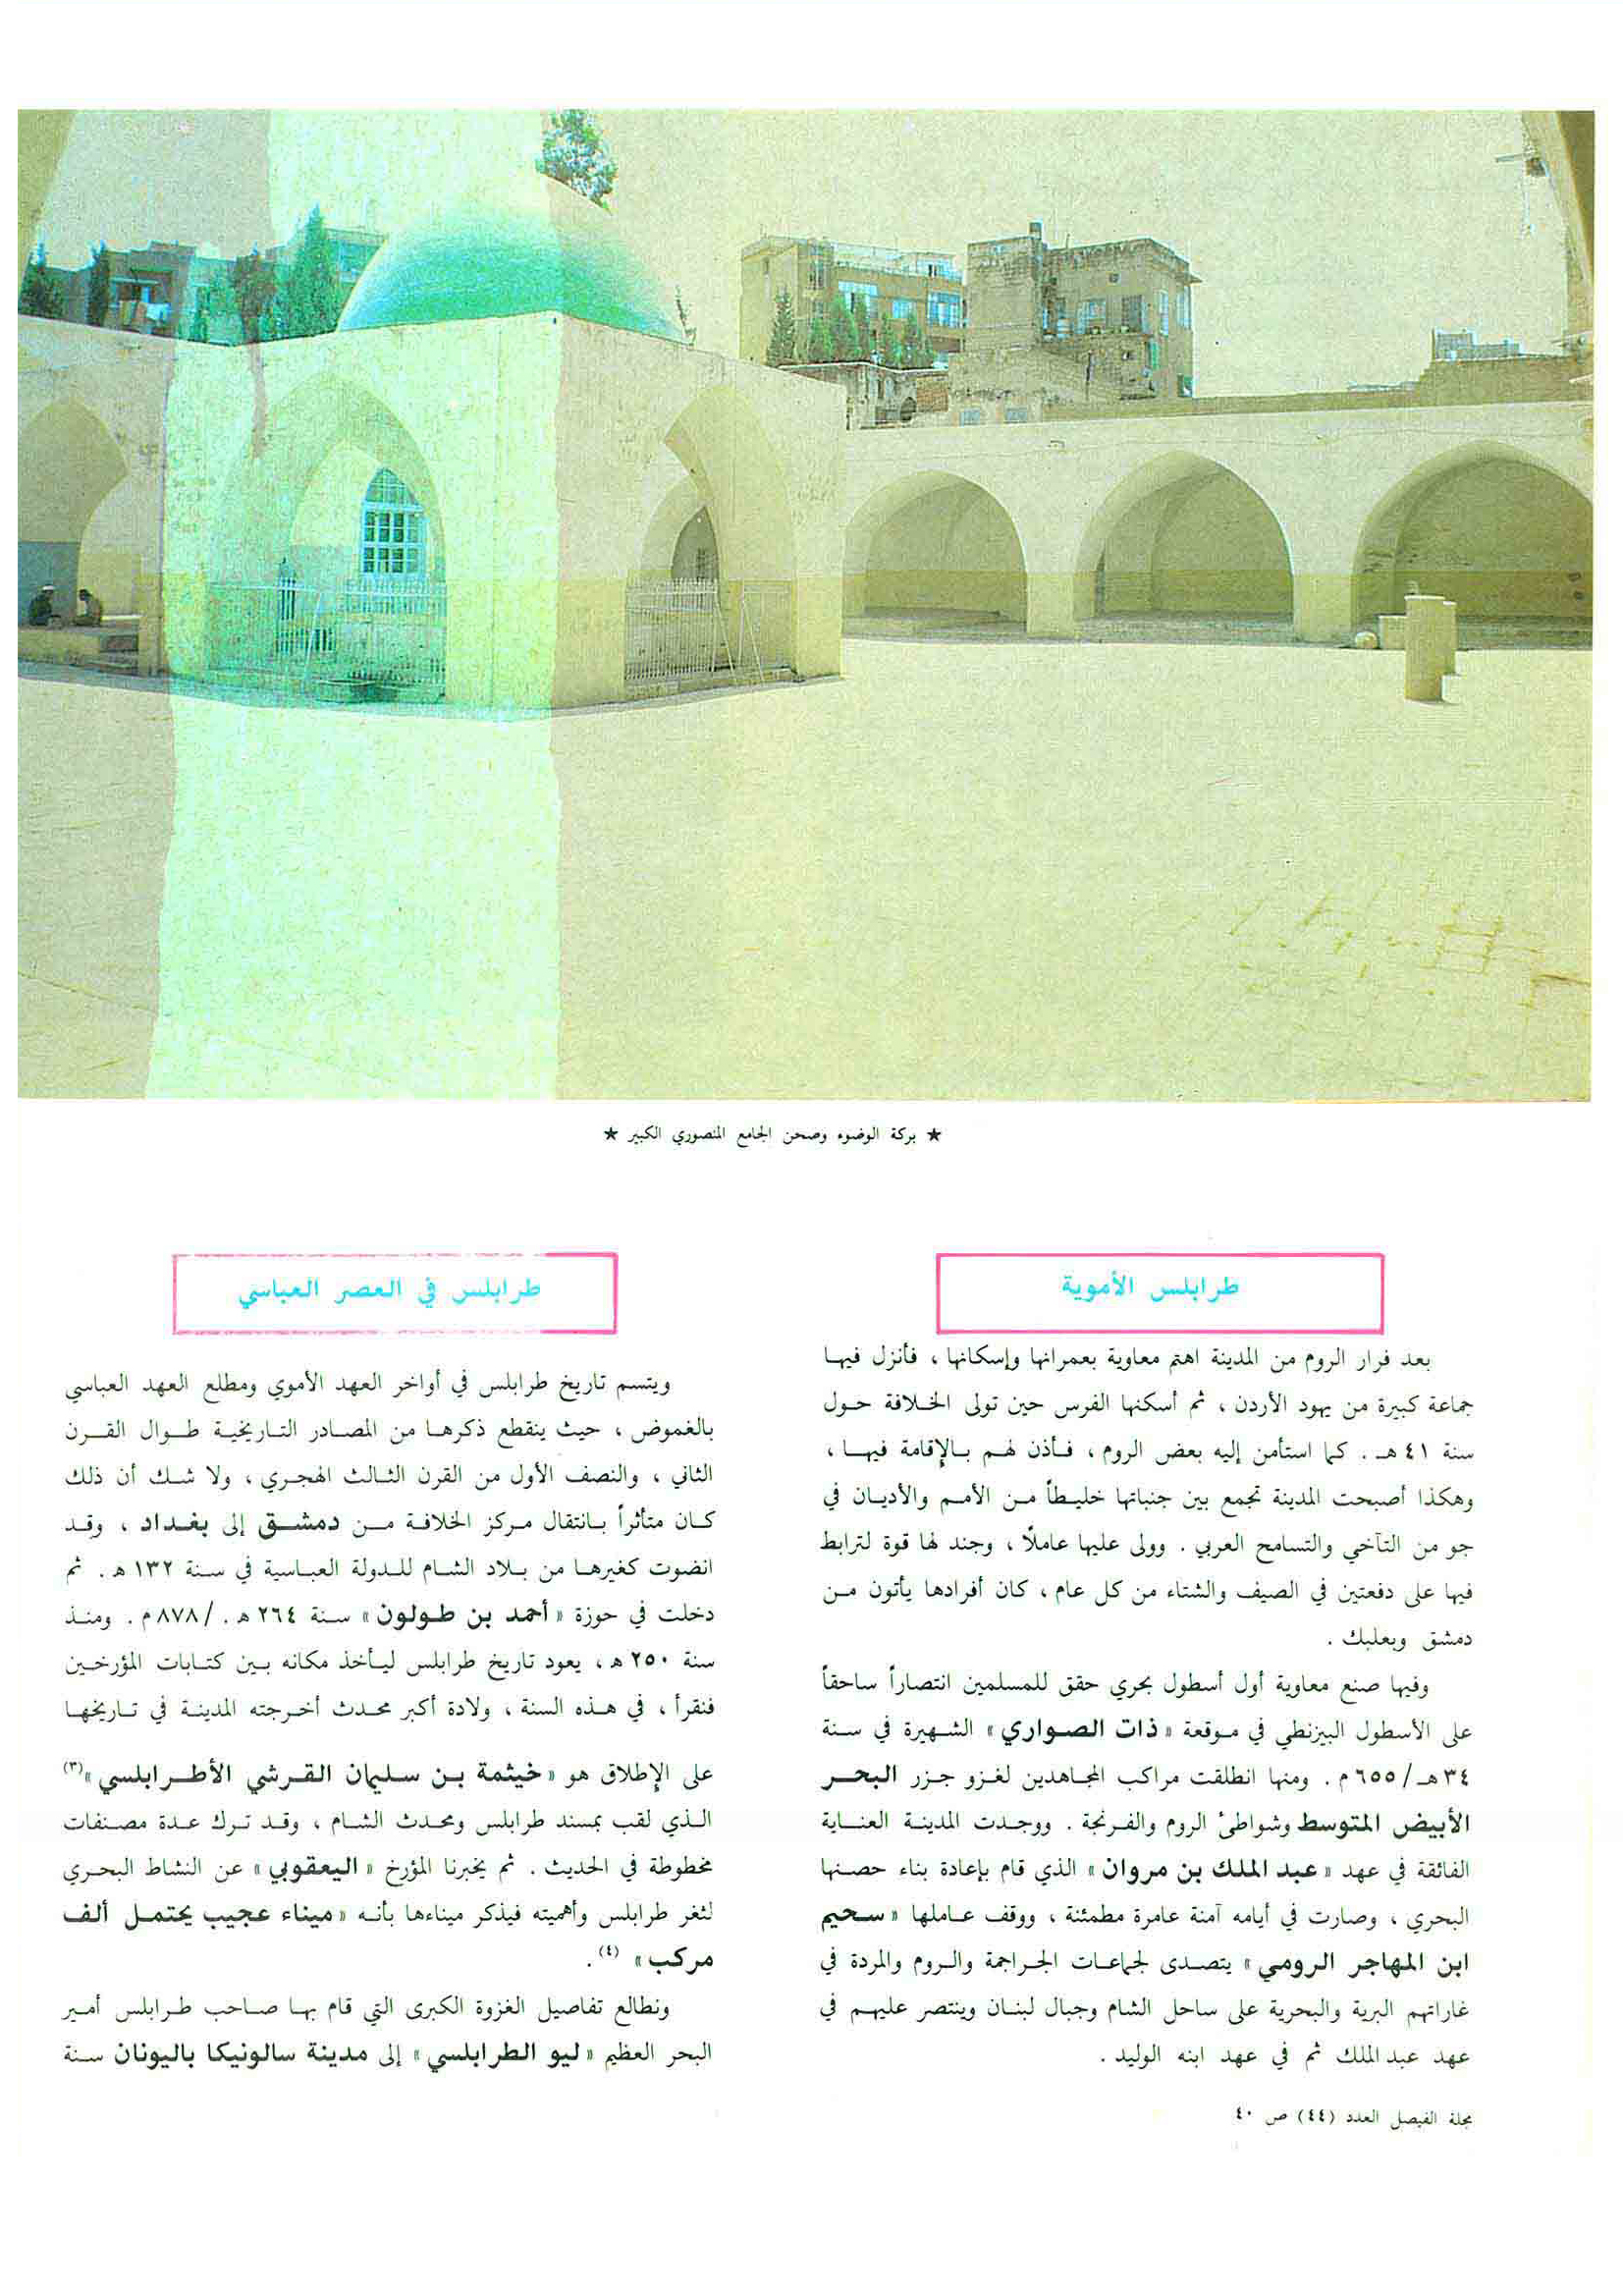 ★ بركة الوضوء وصحن الجامع المنصوري الكبير ★
طرابلس الأموية
بعد فرار الروم من المدينة اهتم معاوية بعمرانها وإسكانها ، فأنزل فيها
جماعة كبيرة من يهود الأردن ، ثم أسكنها الفرس حين تولى الخلافة حول
سنة ٤١ هـ . كما استأمن إليه بعض الروم ، فأذن لهم بالإقامة فيها ،
وهكذا أصبحت المدينة تجمع بين جنباتها خليطاً من الأمم والأديان في
جو من التآخي والتسامح العربي . وولى عليها عاملاً ، وجند لها قوة لترابط
فيها على دفعتين في الصيف والشتاء من كل عام ، كان أفرادها يأتون من
دمشق وبعلبك .
وفيها صنع معاوية أول أسطول بحري حقق للمسلمين انتصاراً ساحقاً
على الأسطول البيزنطي في موقعة « ذات الصواري » الشهيرة في سنة
٣٤ هـ / ٦٥٥ م . ومنها انطلقت مراكب المجاهدين لغزو جزر البحر
الأبيض المتوسط وشواطئ الروم والفرنجة . ووجدت المدينة العناية
الفائقة في عهد « عبد الملك بن مروان » الذي قام بإعادة بناء حصنها
البحري ، وصارت في أيامه آمنة عامرة مطمئنة ، ووقف عاملها « سحيم
ابن المهاجر الرومي » يتصدى لجماعات الجراجمة والروم والمردة في
غاراتهم البرية والبحرية على ساحل الشام وجبال لبنان وينتصر عليهم في
عهد عبد الملك ثم في عهد ابنه الوليد .
طرابلس في العصر العباسي
ويتسم تاريخ طرابلس في أواخر العهد الأموي ومطلع العهد العباسي
بالغموض ، حيث ينقطع ذكرها من المصادر التاريخية طوال القرن
الثاني ، والنصف الأول من القرن الثالث الهجري ، ولا شك أن ذلك
كان متأثراً بانتقال مركز الخلافة من دمشق إلى بغداد ، وقد
انضوت كغيرها من بلاد الشام للدولة العباسية في سنة ١٣٢ هـ . ثم
دخلت في حوزة « أحمد بن طولون » سنة ٢٦٤ هـ . / ٨٧٨ م . ومنذ
سنة ٢٥٠ هـ ، يعود تاريخ طرابلس ليأخذ مكانه بين كتابات المؤرخين
فنقرأ ، في هذه السنة ، ولادة أكبر محدث أخرجته المدينة في تاريخها
على الإطلاق هو « خيثمة بن سليمان القرشي الأطرابلسي »(٣)
الذي لقب بمسند طرابلس ومحدث الشام ، وقد ترك عدة مصنفات
مخطوطة في الحديث . ثم يخبرنا المؤرخ « اليعقوبي » عن النشاط البحري
لثغر طرابلس وأهميته فيذكر ميناءها بأنه « ميناء عجيب يحتمل ألف
مركب » (٤).
ونطالع تفاصيل الغزوة الكبرى التي قام بها صاحب طرابلس أمير
البحر العظيم « ليو الطرابلسي » إلى مدينة سالونيكا باليونان سنة
مجلة الفيصل العدد (٤٤) ص ٤٠